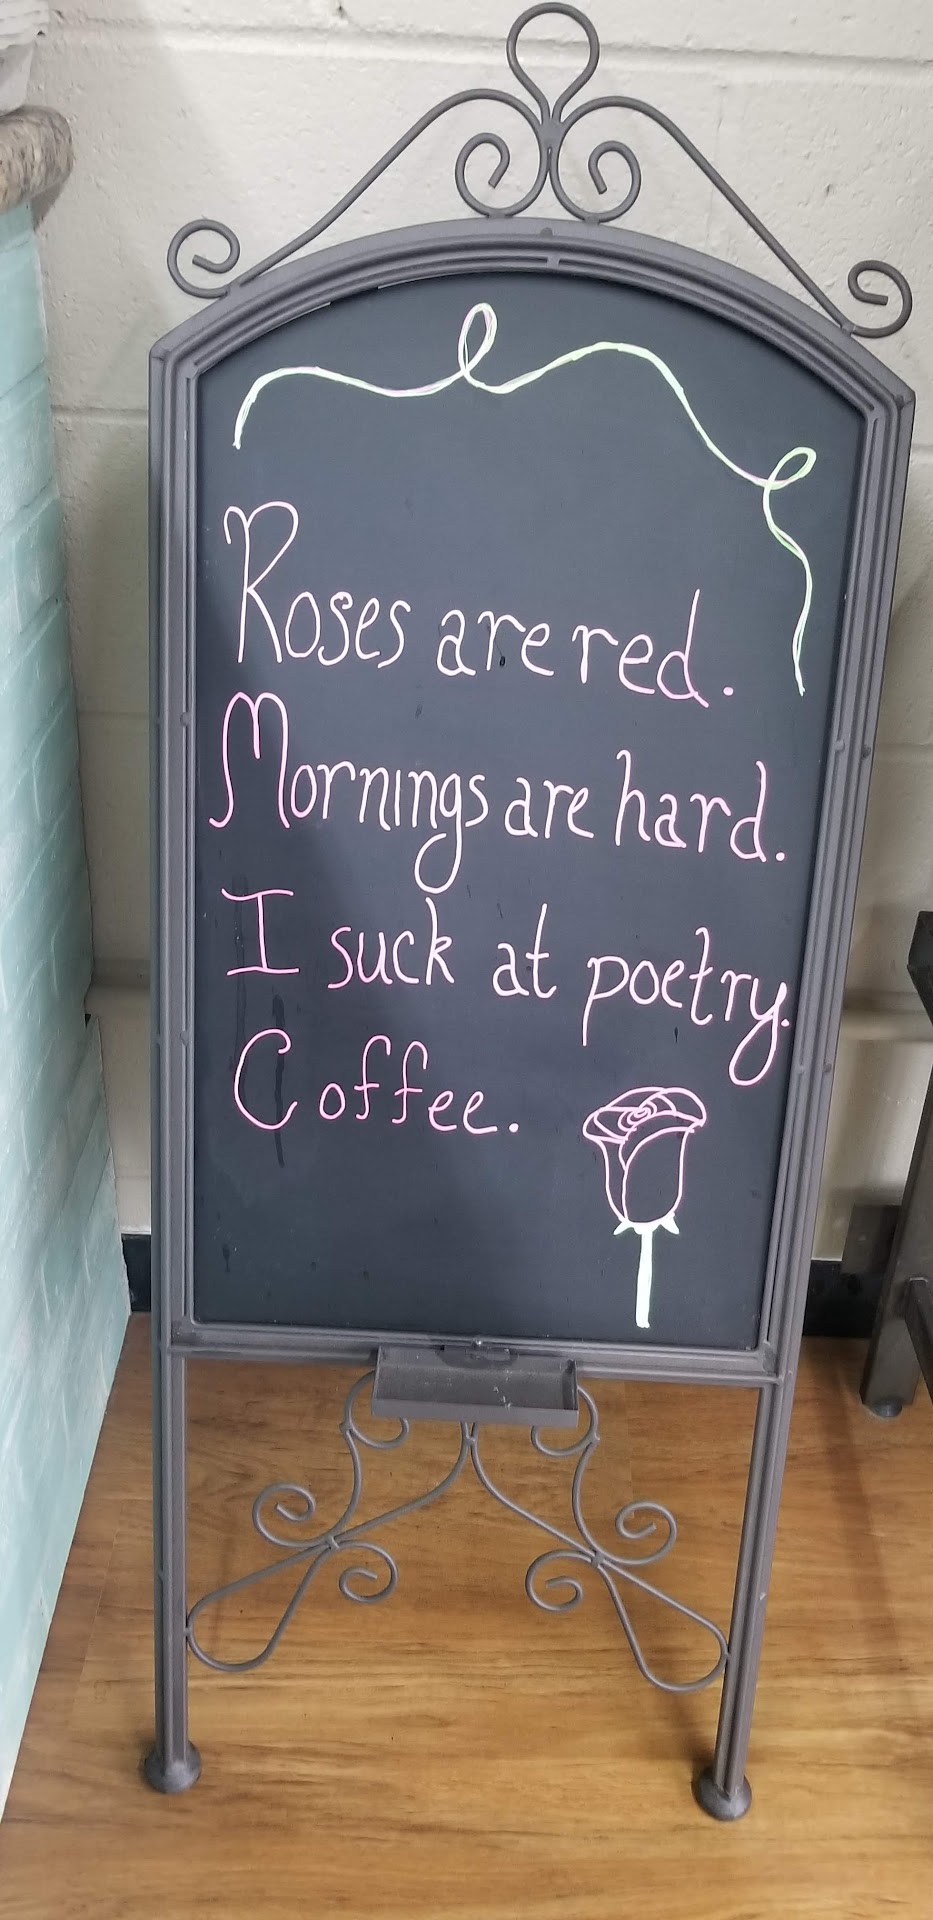 Roses are red.
Mornings are hard.
I suck at poetry.
Coffee.